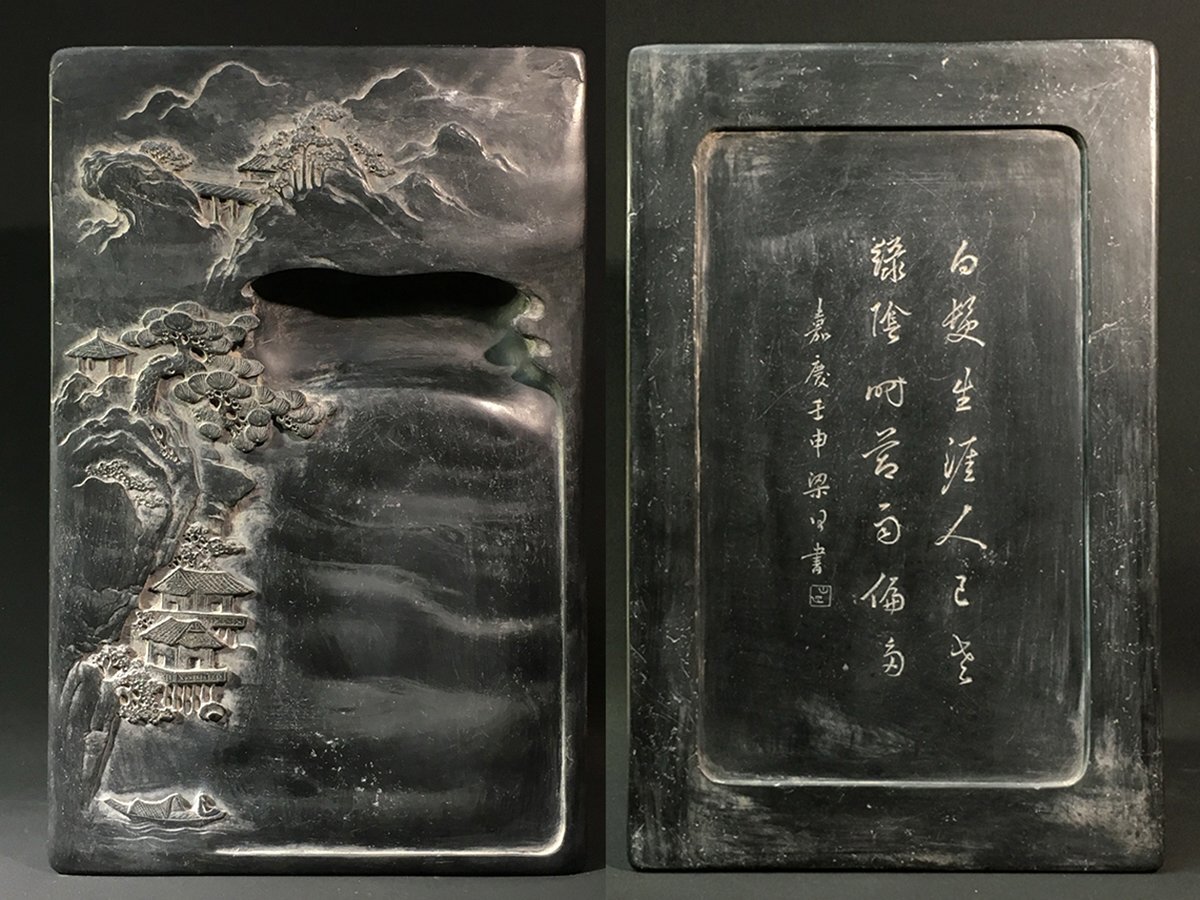 白髮生涯人已老
綠陰時節雨偏多
嘉慶壬申梁同書